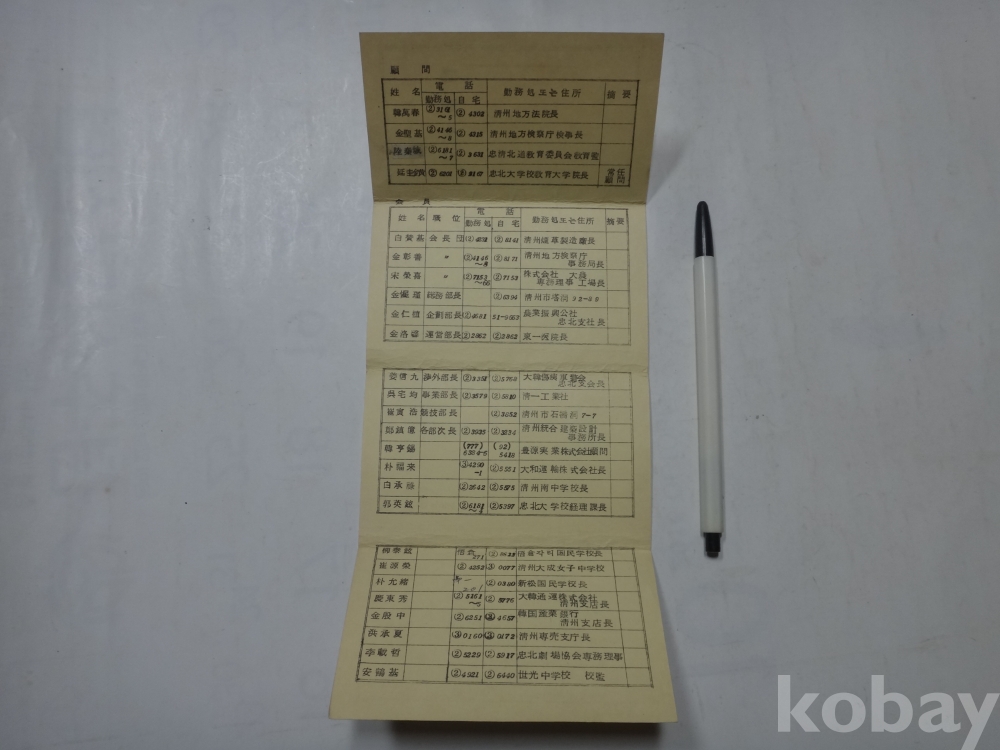 顧 問
姓 名 電 話 勤務処또는住所 摘要
勤務処 自宅
韓萬春 ②3142～5 ② 4302 清州地方法院長
金聖基 ②4146～8 ② 4315 清州地方検察庁検事長
②6181～7 忠清北道教育委員会教育監
② 6201 忠北大学校教育大学院長 常任顧問
会 員
姓 名 職 位 電 話 勤務処또는住所 摘要
勤務処 自宅
白賛基 会長 清州煙草製造廠長
金彰善 〃 ②4146～8 ②6171 清州地方検察庁
事務局長
宋榮喜 〃 ②7153～66 ②7153 株式会社 大農
専務理事 工場長
総務部長 ②6394 清州市塔洞 32-82
金仁植 企劃部長 ②4681 農業振興公社
忠北支社長
金洛 運営部長 ②2862 ②2862 東一医院長
姜信九 渉外部長 ②3351 ②5769
忠北支会長
呉宅均 事業部長 ②3579 ②5610 清一工業社
崔寅浩 競技部長 ②3852 清州市石橋洞 7-7
鄭鎮億 各部次長 ②3935 ②3234 清州統合建築設計
事務所長
韓亨錫 (777)6354-5 (92)5418 豊源実業株式会社顧問
朴福来 ③4290～1 ②5551 大和運輸株式会社長
白承 ②2642 ②5575 清州南中学校長
郭英鉉 ②6181～4 ②5397 忠北大学校経理課長
271 国民学校長
崔源榮 ②4252 ③0077 清州大成女子中学校
朴允緒 ②0380 新松国民学校長
慶東秀 ②5161～5 ②5776 大韓通運株式会社
清州支店長
金殷中 ②6251 ②4657 韓国産業銀行
清州支店長
洪承夏 ③0160 ③0172 清州専売支庁長
李敏哲 ②5229 ②5917 忠北劇場協会専務理事
安福基 ②4921 ②6440 世光中学校 校監
kobay